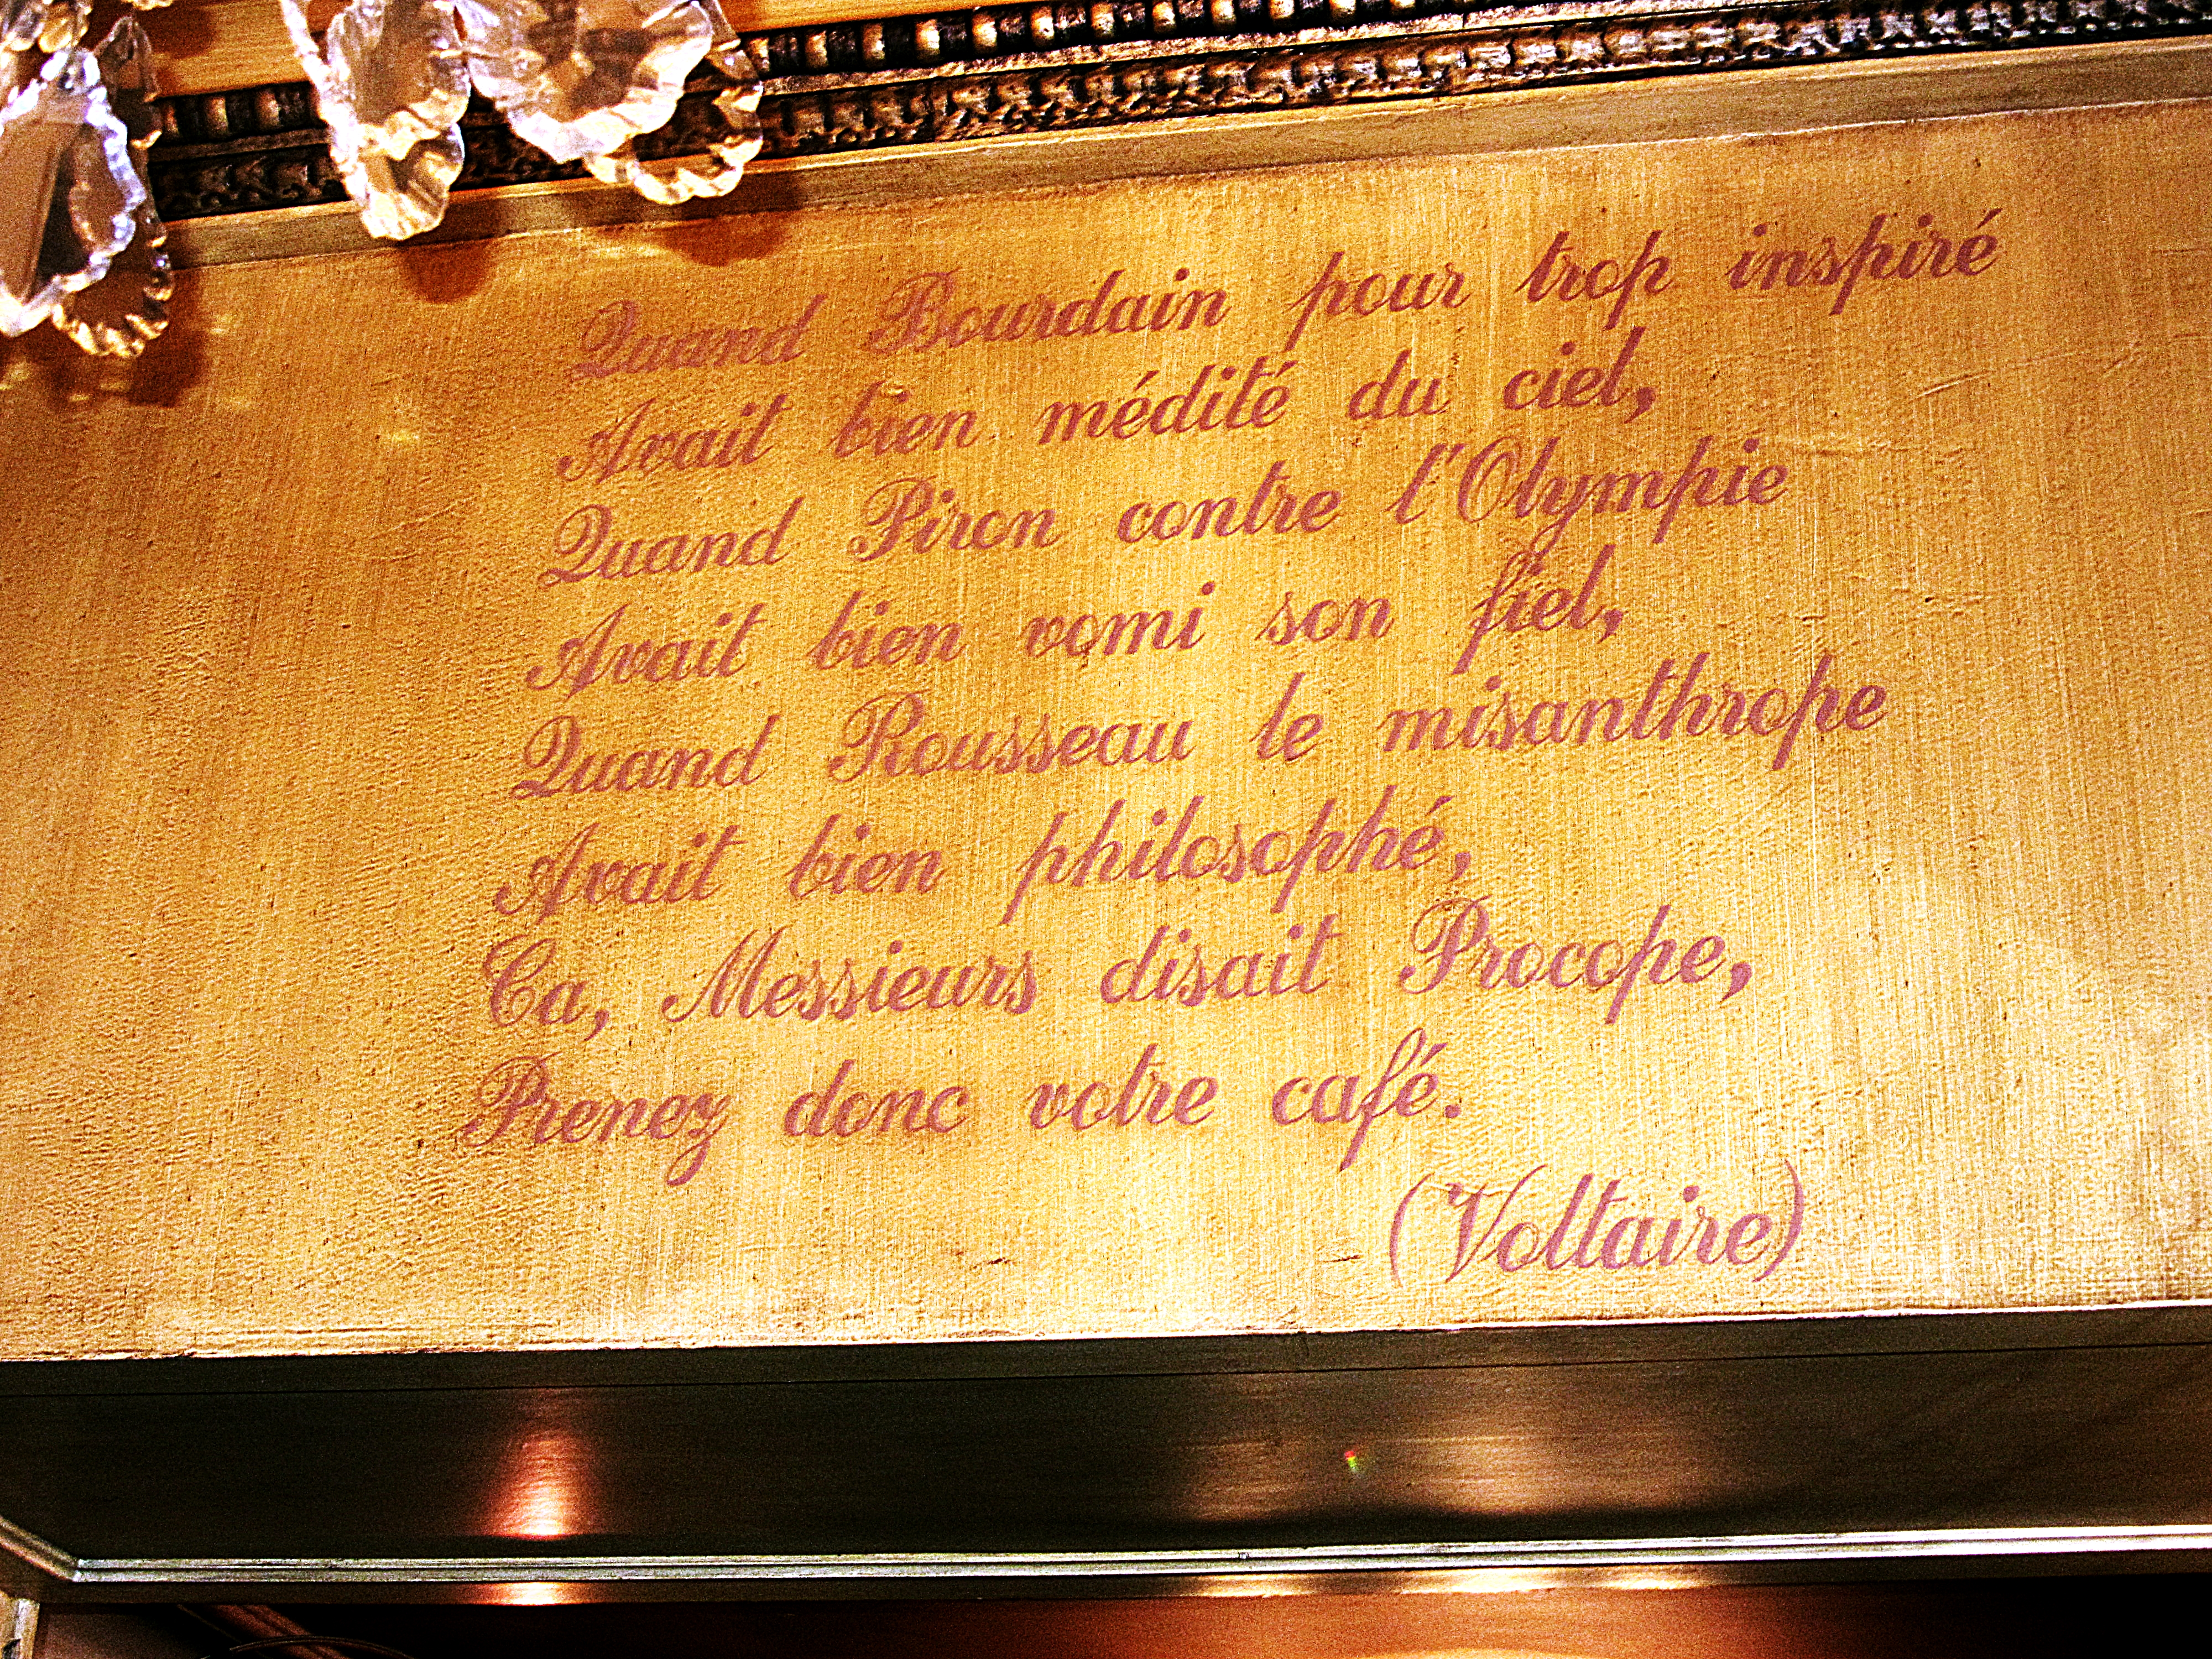 Quand Bourdain pour trop inspiré
Avait bien médité du ciel,
Quand Piron contre l'Olympie
Avait bien vomi son fiel,
Quand Rousseau le misanthrope
Avait bien philosophé,
Ca, Messieurs disait Procope,
Prenez donc votre café.
(Voltaire)